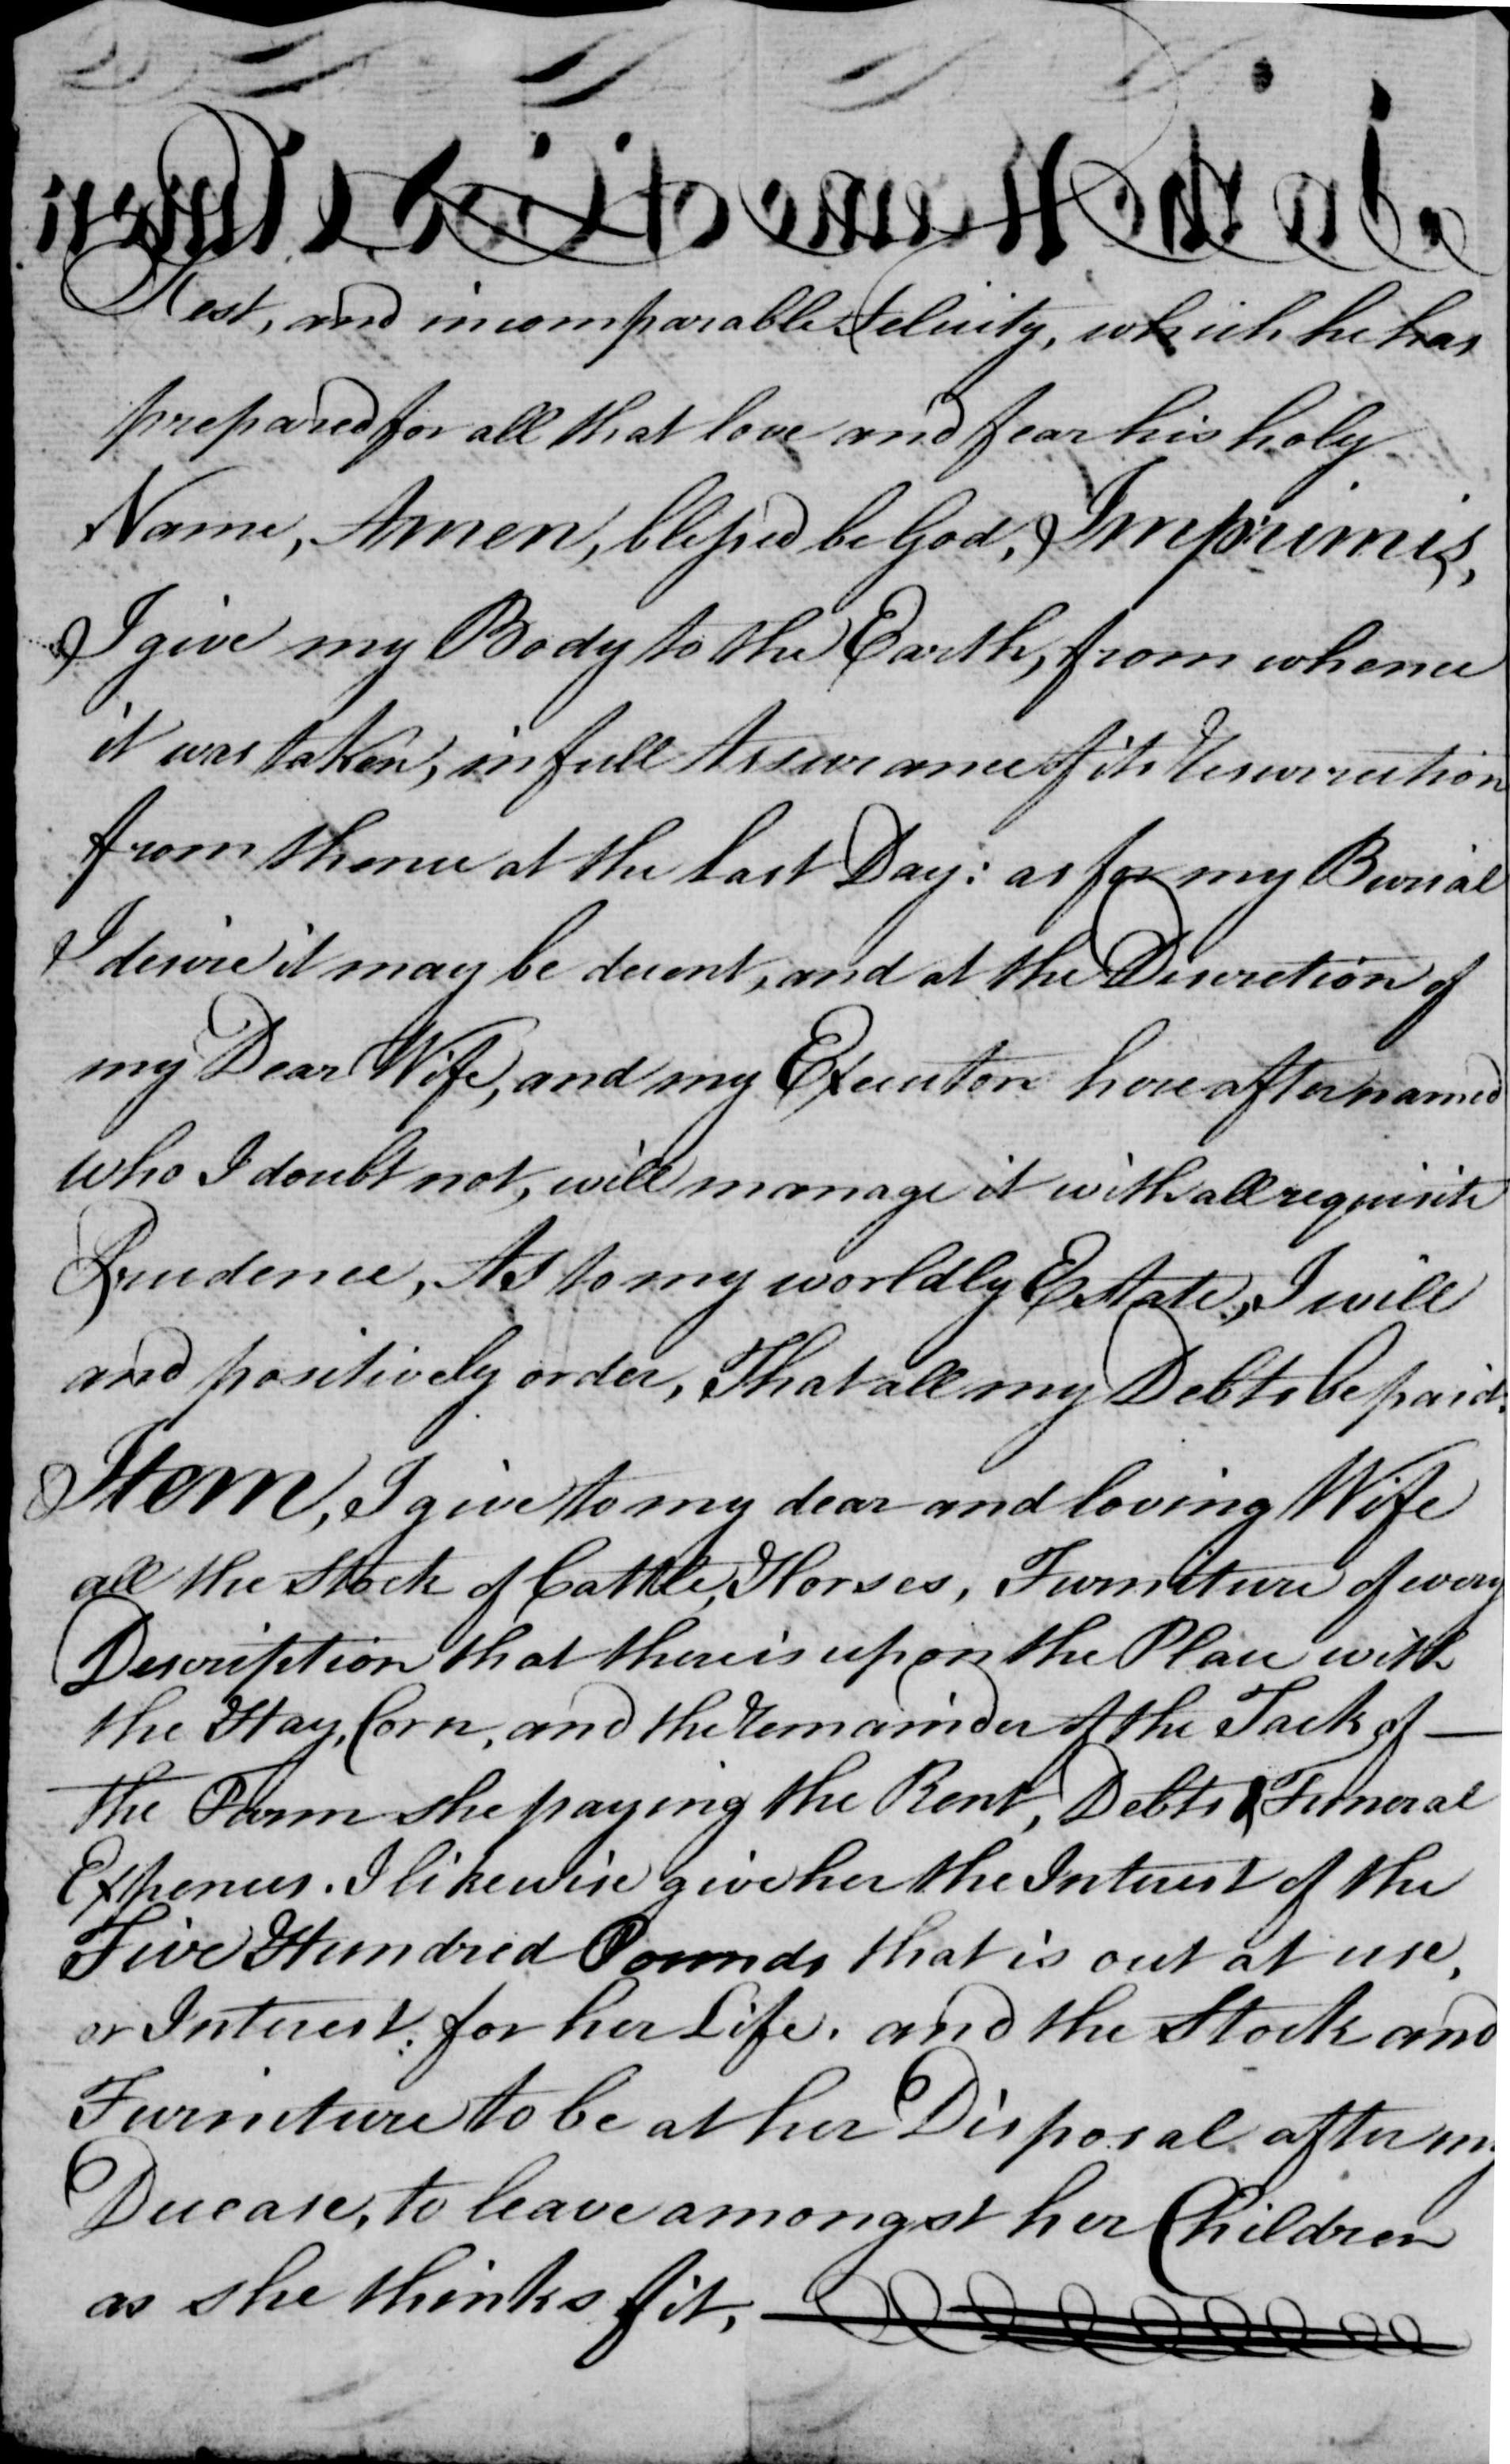 In the Name of God Amen
Rest, and incomparable Felicity, which he has
prepared for all that love and fear his holy
Name, Amen, blessed be God, Imprimis,
I give my Body to the Earth, from whence
it was taken, in full Assurance of its Resurrection
from thence at the last Day: as for my Burial
I desire it may be decent, and at the Discretion of
my Dear Wife, and my Executors hereafter named
who I doubt not, will manage it with all requisite
Prudence, As to my worldly Estate, I will
and positively order, That all my Debts be paid.
Item, I give to my dear and loving Wife
all the Stock of Cattle, Horses, Furniture of every
Description that there is upon the Place with
the Hay, Corn, and the Remainder of the Tack of —
the Farm she paying the Rent, Debts & Funeral
Expences. I likewise give her the Interest of the
Five Hundred Pounds that is out at use,
or Interest: for her Life. and the Stock and
Furniture to be at her Disposal after my
Decease, to leave amongst her Children
as she thinks fit,